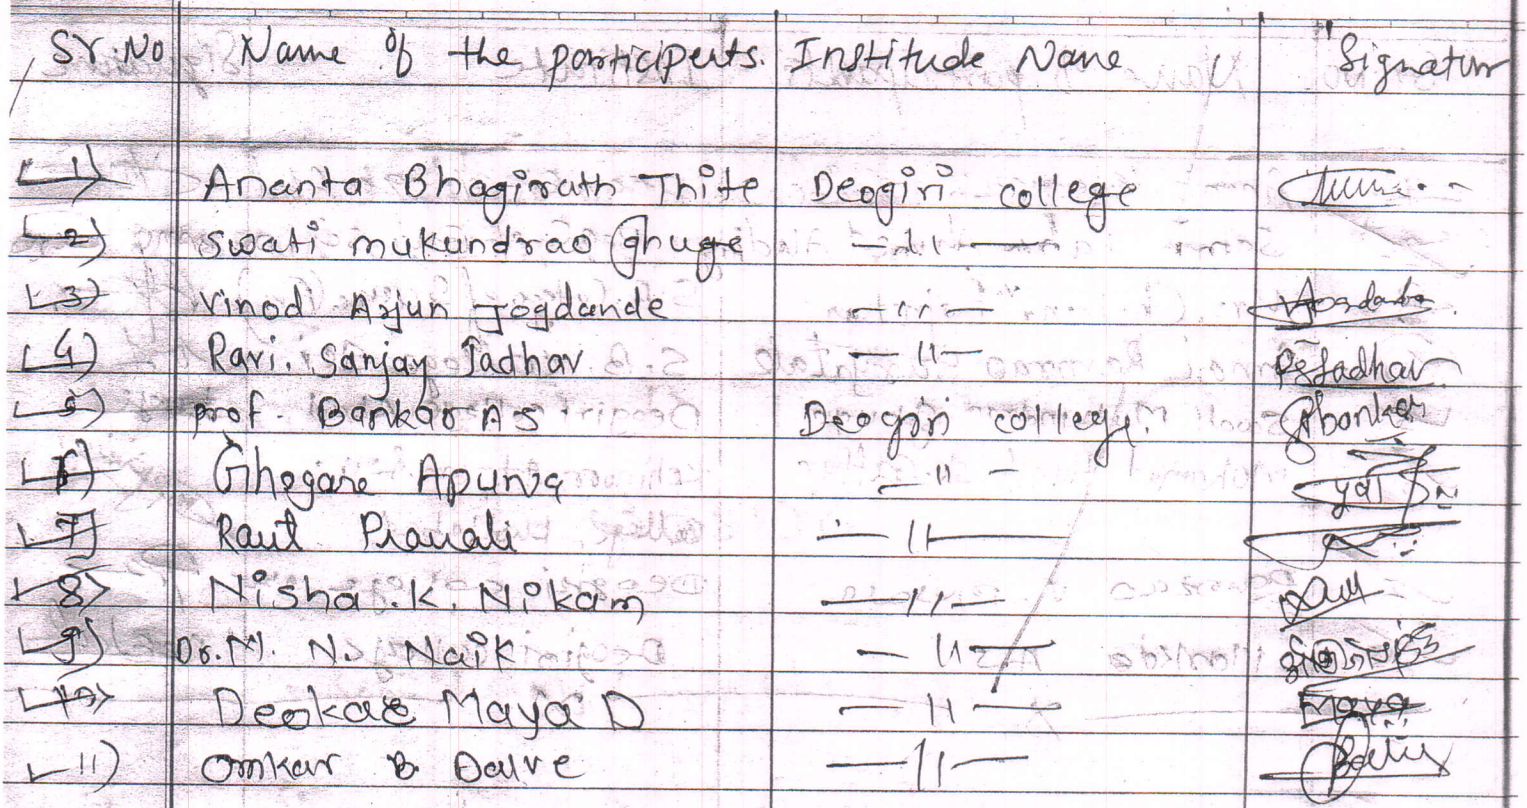 Sr.No Name of the participents. Institude Name Signatur
1) Ananta Bhagirath Thite Deogiri college
2) Swati mukundrao Ghuge —11—
3) Vinod Arjun Jogdande —11— Jogdande
4) Ravi. Sanjay Jadhav —11— RSJadhav
5) prof. Bankar A S Deogiri college. Bankar
6) Ghogare Apurva —11—
7) Raut Pranali —11—
8) Nisha .K. Nikam —11—
9) Dr. M. N. Naik —11—
10) Deokar Maya D —11— Maya
11) Omkar B. Dalve —11—